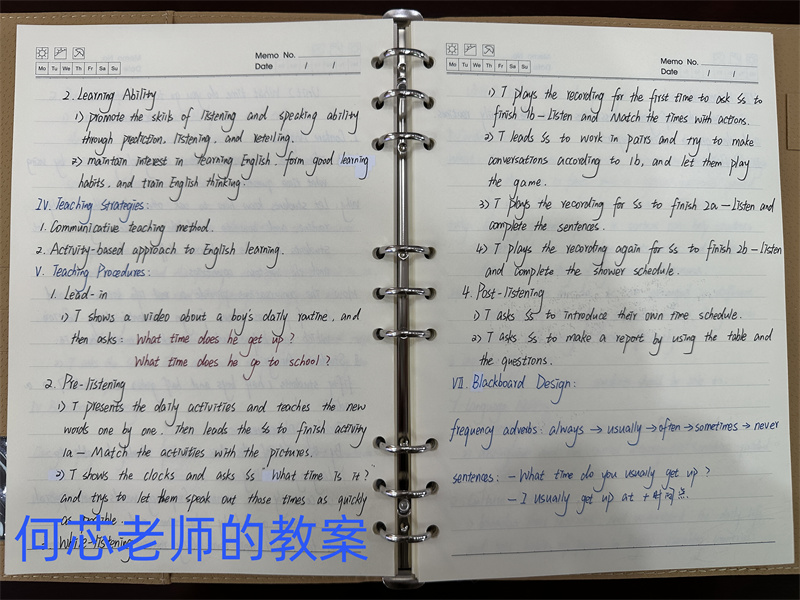 Memo No.
Mo Tu We Th Fr Sa Su
Date / /
2. Learning Ability
1) promote the skills of listening and speaking ability
through prediction, listening, and retelling.
2) maintain interest in learning English, form good learning
habits, and train English thinking.
IV. Teaching Strategies:
1. Communicative teaching method.
2. Activity-based approach to English learning.
V. Teaching Procedures:
1. Lead-in
1) T shows a video about a boy's daily routine, and
then asks: What time does he get up?
What time does he go to school?
2. Pre-listening
1) T presents the daily activities and teaches the new
words one by one. Then leads the Ss to finish activity
1a — Match the activities with the pictures.
2) T shows the clocks and asks Ss "What time is it?"
and trys to let them speak out those times as quickly
as possible.
While-listening
何芯老师的教案
Memo No.
Mo Tu We Th Fr Sa Su
Date / /
1) T plays the recording for the first time to ask Ss to
finish 1b - Listen and Match the times with actions.
2) T leads Ss to work in pairs and try to make
conversations according to 1b, and let them play
the game.
3) T plays the recording for Ss to finish 2a — Listen and
complete the sentences.
4) T plays the recording again for Ss to finish 2b - Listen
and complete the shower schedule.
4. Post-listening
1) T asks Ss to introduce their own time schedule.
2) T asks Ss to make a report by using the table and
the questions.
VII. Blackboard Design:
frequency adverbs: always → usually → often → sometimes → never
sentences: - What time do you usually get up?
- I usually get up at + 时间点.